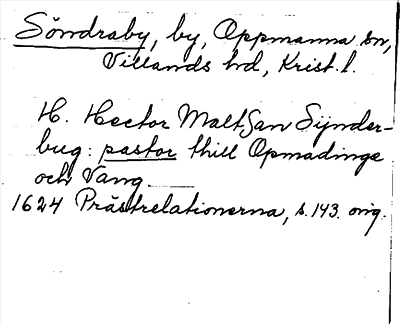 Söndraby, by, Oppmanna sn,
Villands hd, Krist. l.
H. Hector MaltSan Sÿnder-
bug: pastor thill Opmadinge
och Vang
1624 Prästrelationerna, s. 143. orig.